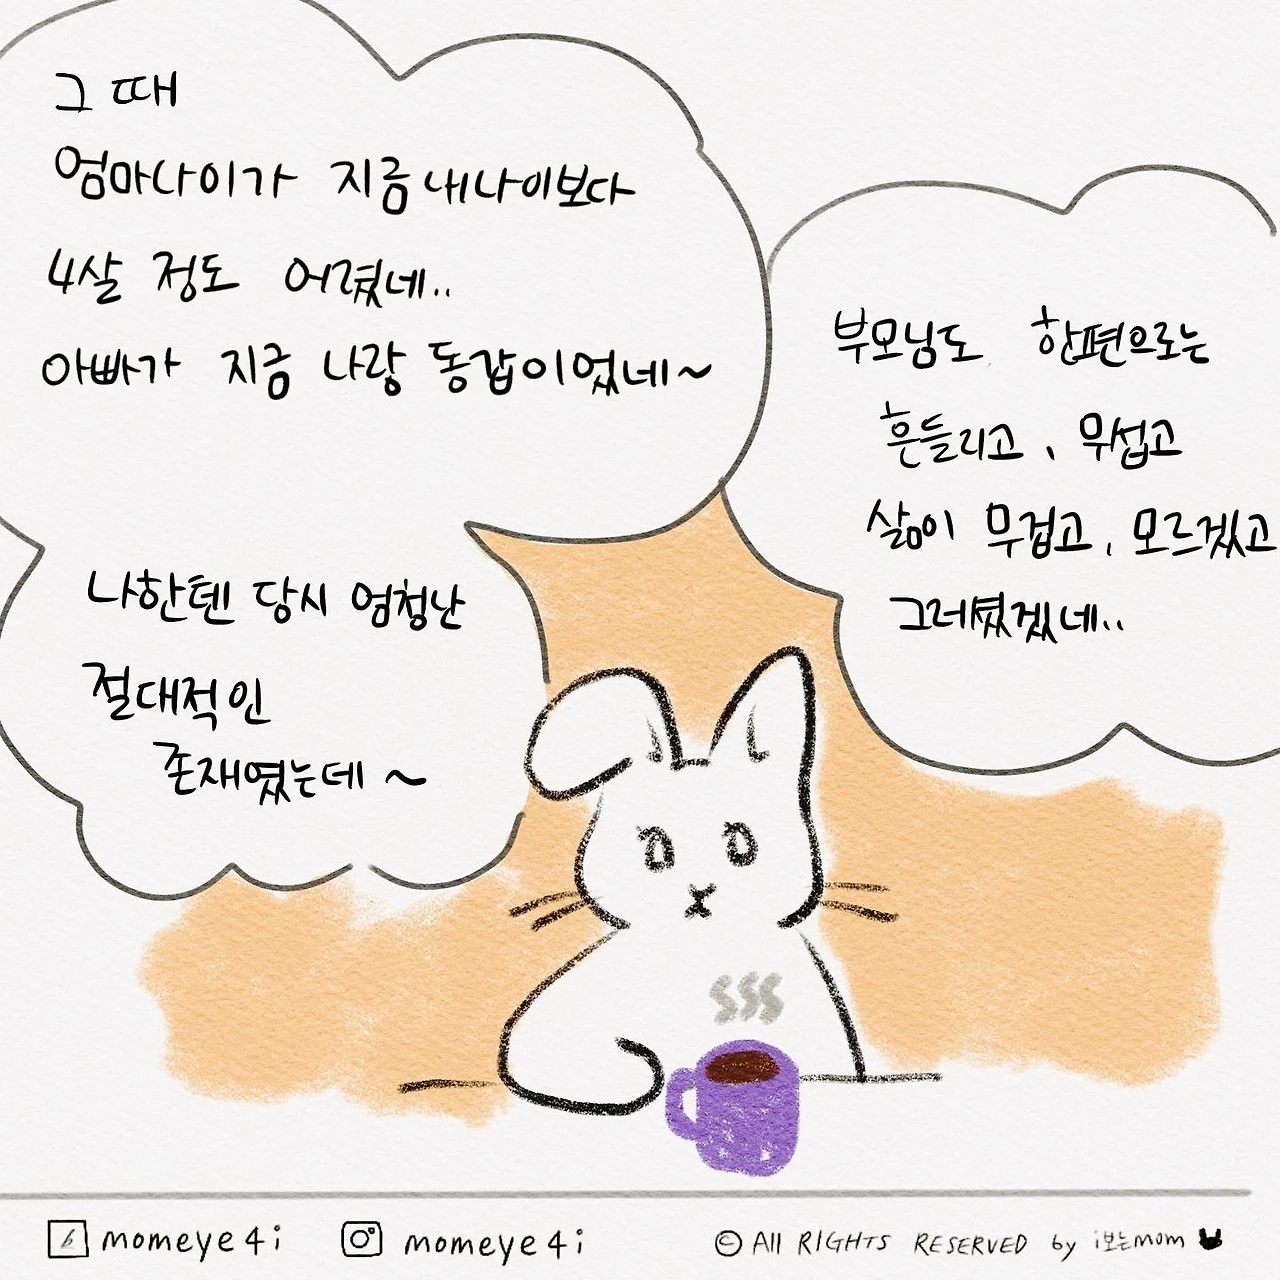 그 때
엄마나이가 지금 내나이보다
4살 정도 어렸네..
아빠가 지금 나랑 동갑이었네~
나한텐 당시 엄청난
절대적인
존재였는데 ~
부모님도 한편으로는
흔들리고, 무섭고
삶이 무겁고, 모르겠고
그러셨겠네..
b momeye4i
momeye4i
© All RIGHTS RESERVED by i보는mom